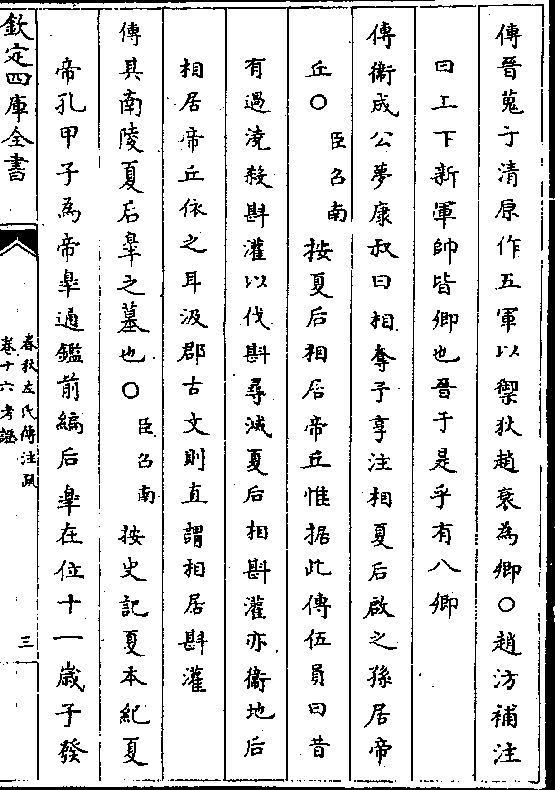 傳晉蒐于清原作五軍以禦狄趙衰為卿○趙汸補注
曰上下新軍帥皆卿也晉于是乎有八卿
傳衛成公夢康叔曰相奪予享注相夏后啟之孫居帝
丘○臣召南按夏后相居帝丘惟据此傳伍員曰昔
有過澆殺斟灌以伐斟尋滅夏后相斟灌亦衞地后
相居帝丘依之耳汲郡古文則直謂相居斟灌
傳其南陵夏后皋之墓也○臣召南按史記夏本紀夏
帝孔甲子為帝皋通鑑前編后皋在位十一歲子發
欽定四庫全書
春秋左氏傳注疏
卷十六考證
三